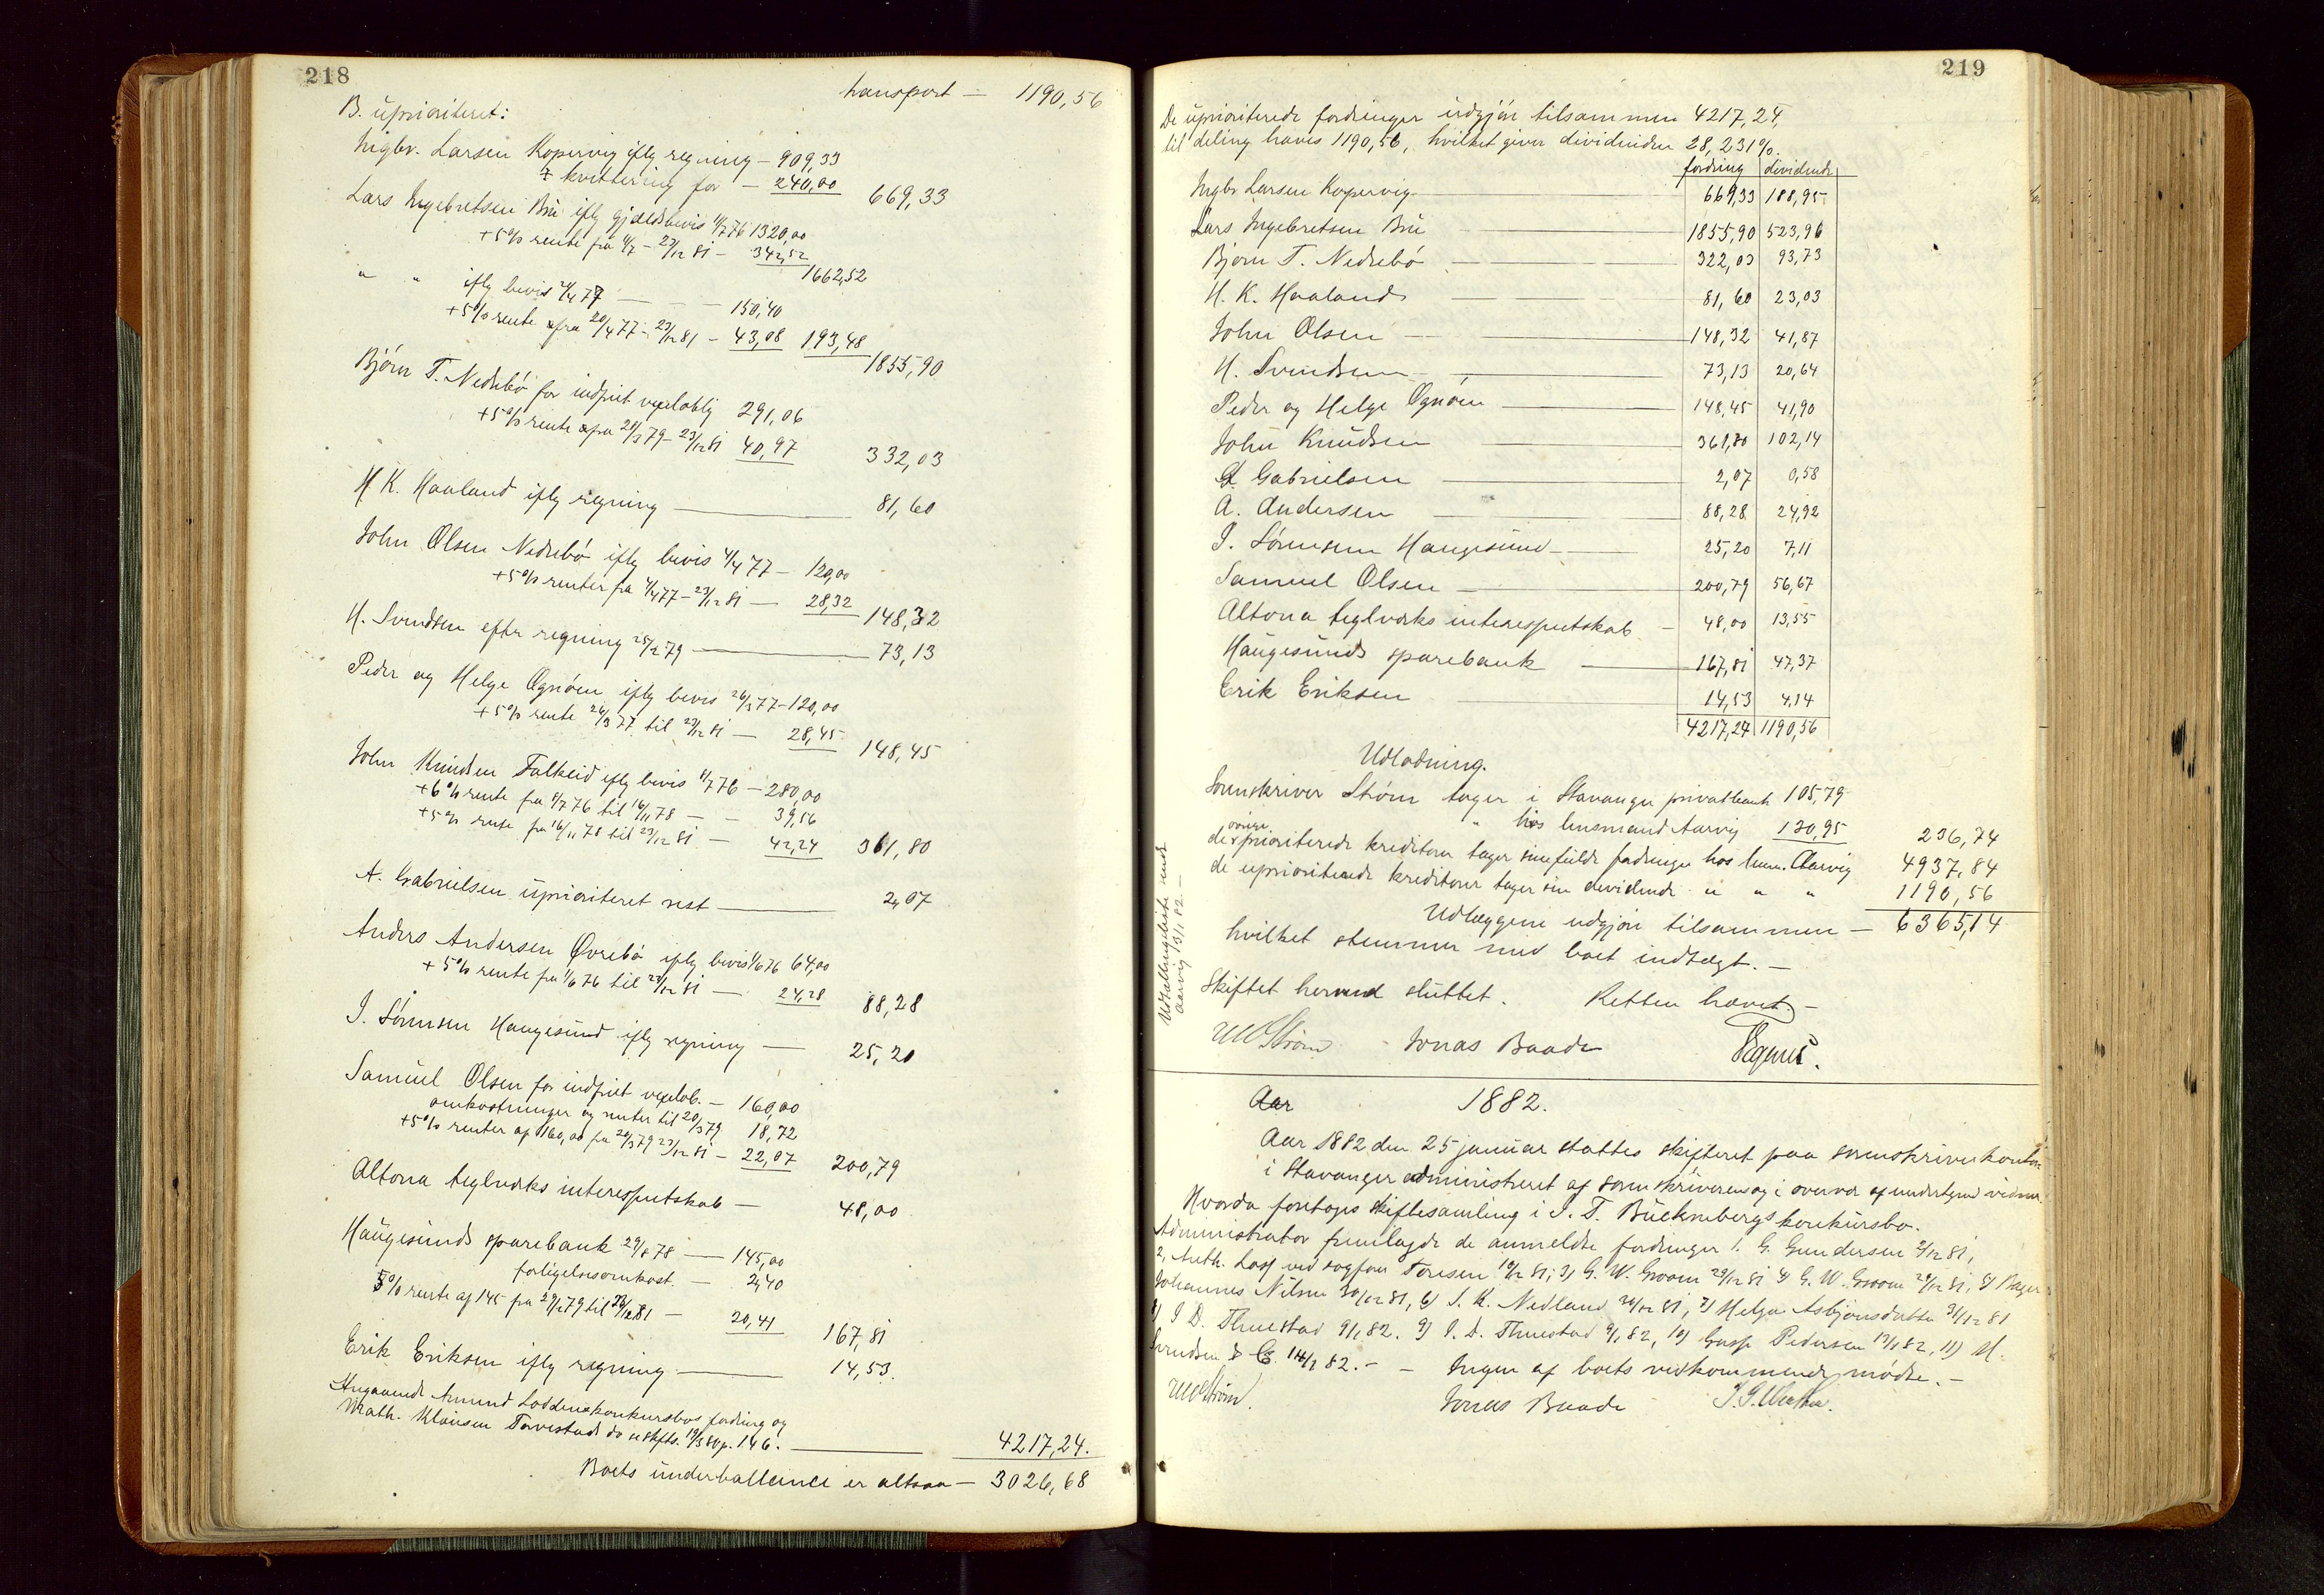 218
transport — 1190,56
B. uprioriteret:
Ingbr. Larsen Kopervig iflg regning — 909,33
÷ kvittering for — 240,00 669,33
Lars Ingebretsen Bru iflg gjældsbevis 4/7 76 1320,00
+ 5% rente fra 4/7 – 23/12 81 — 342,52
1662,52
" " iflg bevis 20/4 77 — — — 150,40
+ 5% rente fra 20/4 77 – 23/12 81 — 43,08 193,48
1855,90
Bjørn T. Nedrebø for indfriet vexeloblig 291,06
+ 5% rente fra 20/3 79 – 23/12 81 40,97 332,03
H. K. Haaland iflg regning — 81,60
John Olsen Nedrebø iflg bevis 4/4 77 — 120,00
+ 5% renter fra 4/4 77 – 23/12 81 — 28,32
148,32
H. Svendsen efter regning 25/2 79 — 73,13
Peder og Helge Øgnøen iflg bevis 26/3 77 — 120,00
+ 5% rente 26/3 77 til 23/12 81 — 28,45
148,45
John Knudsen Falkeid iflg bevis 8/7 76 — 280,00
+ 6% rente fra 8/7 76 til 16/11 78 — — 39,56
+ 5% rente fra 16/11 78 til 23/12 81 — 42,24 361,80
A. Gabrielsen uprioriteret rest — 2,07
Anders Andersen Øvrebø iflg bevis 1/6 76 64,00
+ 5% rente fra 1/6 76 til 23/12 81 — 24,28
88,28
I. Sørensen Haugesund iflg regning — 25,20
Samuel Olsen for indfriet vexelob. — 160,00
omkostninger og renter til 20/3 79 18,72
+ 5% renter af 160,00 fra 20/3 79 23/12 81 — 22,07 200,79
Altona teglværks interesentskab — 48,00
Haugesunds sparebank 29/8 78 — 145,00
forligelsesomkost. — 2,40
5% rente af 145 fra 29/2 79 til 23/12 81 — 20,41
167,81
Erik Eriksen iflg regning — 14,53.
Angaaende Amund Loddens konkursbos fordring og
Math. Klausen Torvestads do se skfts. 19/3 80 p. 146. — 4217,24.
Boets underballance er altsaa — 3026,68
219
De uprioriterede fordringer udgjør tilsammen 4217,24,
til deling haves 1190,56, hvilket giver dividenden 28,231%.
fordring dividende
Ingbr Larsen Kopervig 669,33 188,95
Lars Ingebretsen Bru 1855,90 523,96
Bjørn T. Nedrebø 322,03 93,73
H. K. Haaland 81,60 23,03
John Olsen 148,32 41,87
H. Svendsen 73,13 20,64
Peder og Helge Øgnøen 148,45 41,90
John Knudsen 361,80 102,14
A. Gabrielsen 2,07 0,58
A. Andersen 88,28 24,92
I. Sørensen Haugesund 25,20 7,11
Samuel Olsen 200,79 56,67
Altona teglværks interesentskab 48,00 13,55
Haugesunds sparebank 167,81 47,37
Erik Eriksen 14,53 4,14
4217,24 1190,56
Udlodning.
Sorenskriver Strøm tager i Stavanger privatbank 105,79
" hos lensmand Aarvig 130,95 236,74
de øvrige prioriterede kreditorer tager sine fulde fordringer hos lensm. Aarvig 4937,84
de uprioriterede kreditorer tager sin dividende " " " 1190,56
Udlæggene udgjør tilsammen — 6365,14
hvilket stemmer med boet indtægt. —
Udbetalingsliste sendt
Aarvig 13/1 82 —
Skiftet hermed sluttet. Retten hævet. —
Strøm Jonas Baade
Aar 1882.
Aar 1882 den 25 januar sattes skifteret paa sorenskriverkontoret
i Stavanger administreret af sorenskriveren og i overvær af undertegnede vidner.
Hvorda foretoges skiftesamling i J. T. Buckenbergs konkursbo.
Administrator fremlagde de anmeldte fordringer 1. G. Gundersen 2/12 81,
2, Anth. Lasf ved sagfører Toresen 19/12 81; 3) G. W. Groom 29/12 81 4) G. W. Groom 29/12 81, 5) Bager
Johannes Nilsen 30/12 81, 6) S. K. Nedland 30/12 81, 7) Helga Asbjørnsdatter 31/12 81
8) I D. Thuestad 9/1 82. 9) I. D. Thuestad 9/1 82, 10) Gasp Pedersen 13/1 82, 11) H.
Svendsen & Co. 14/1 82. — — Ingen af boets vedkommende mødte. —
Strøm. Jonas Baade